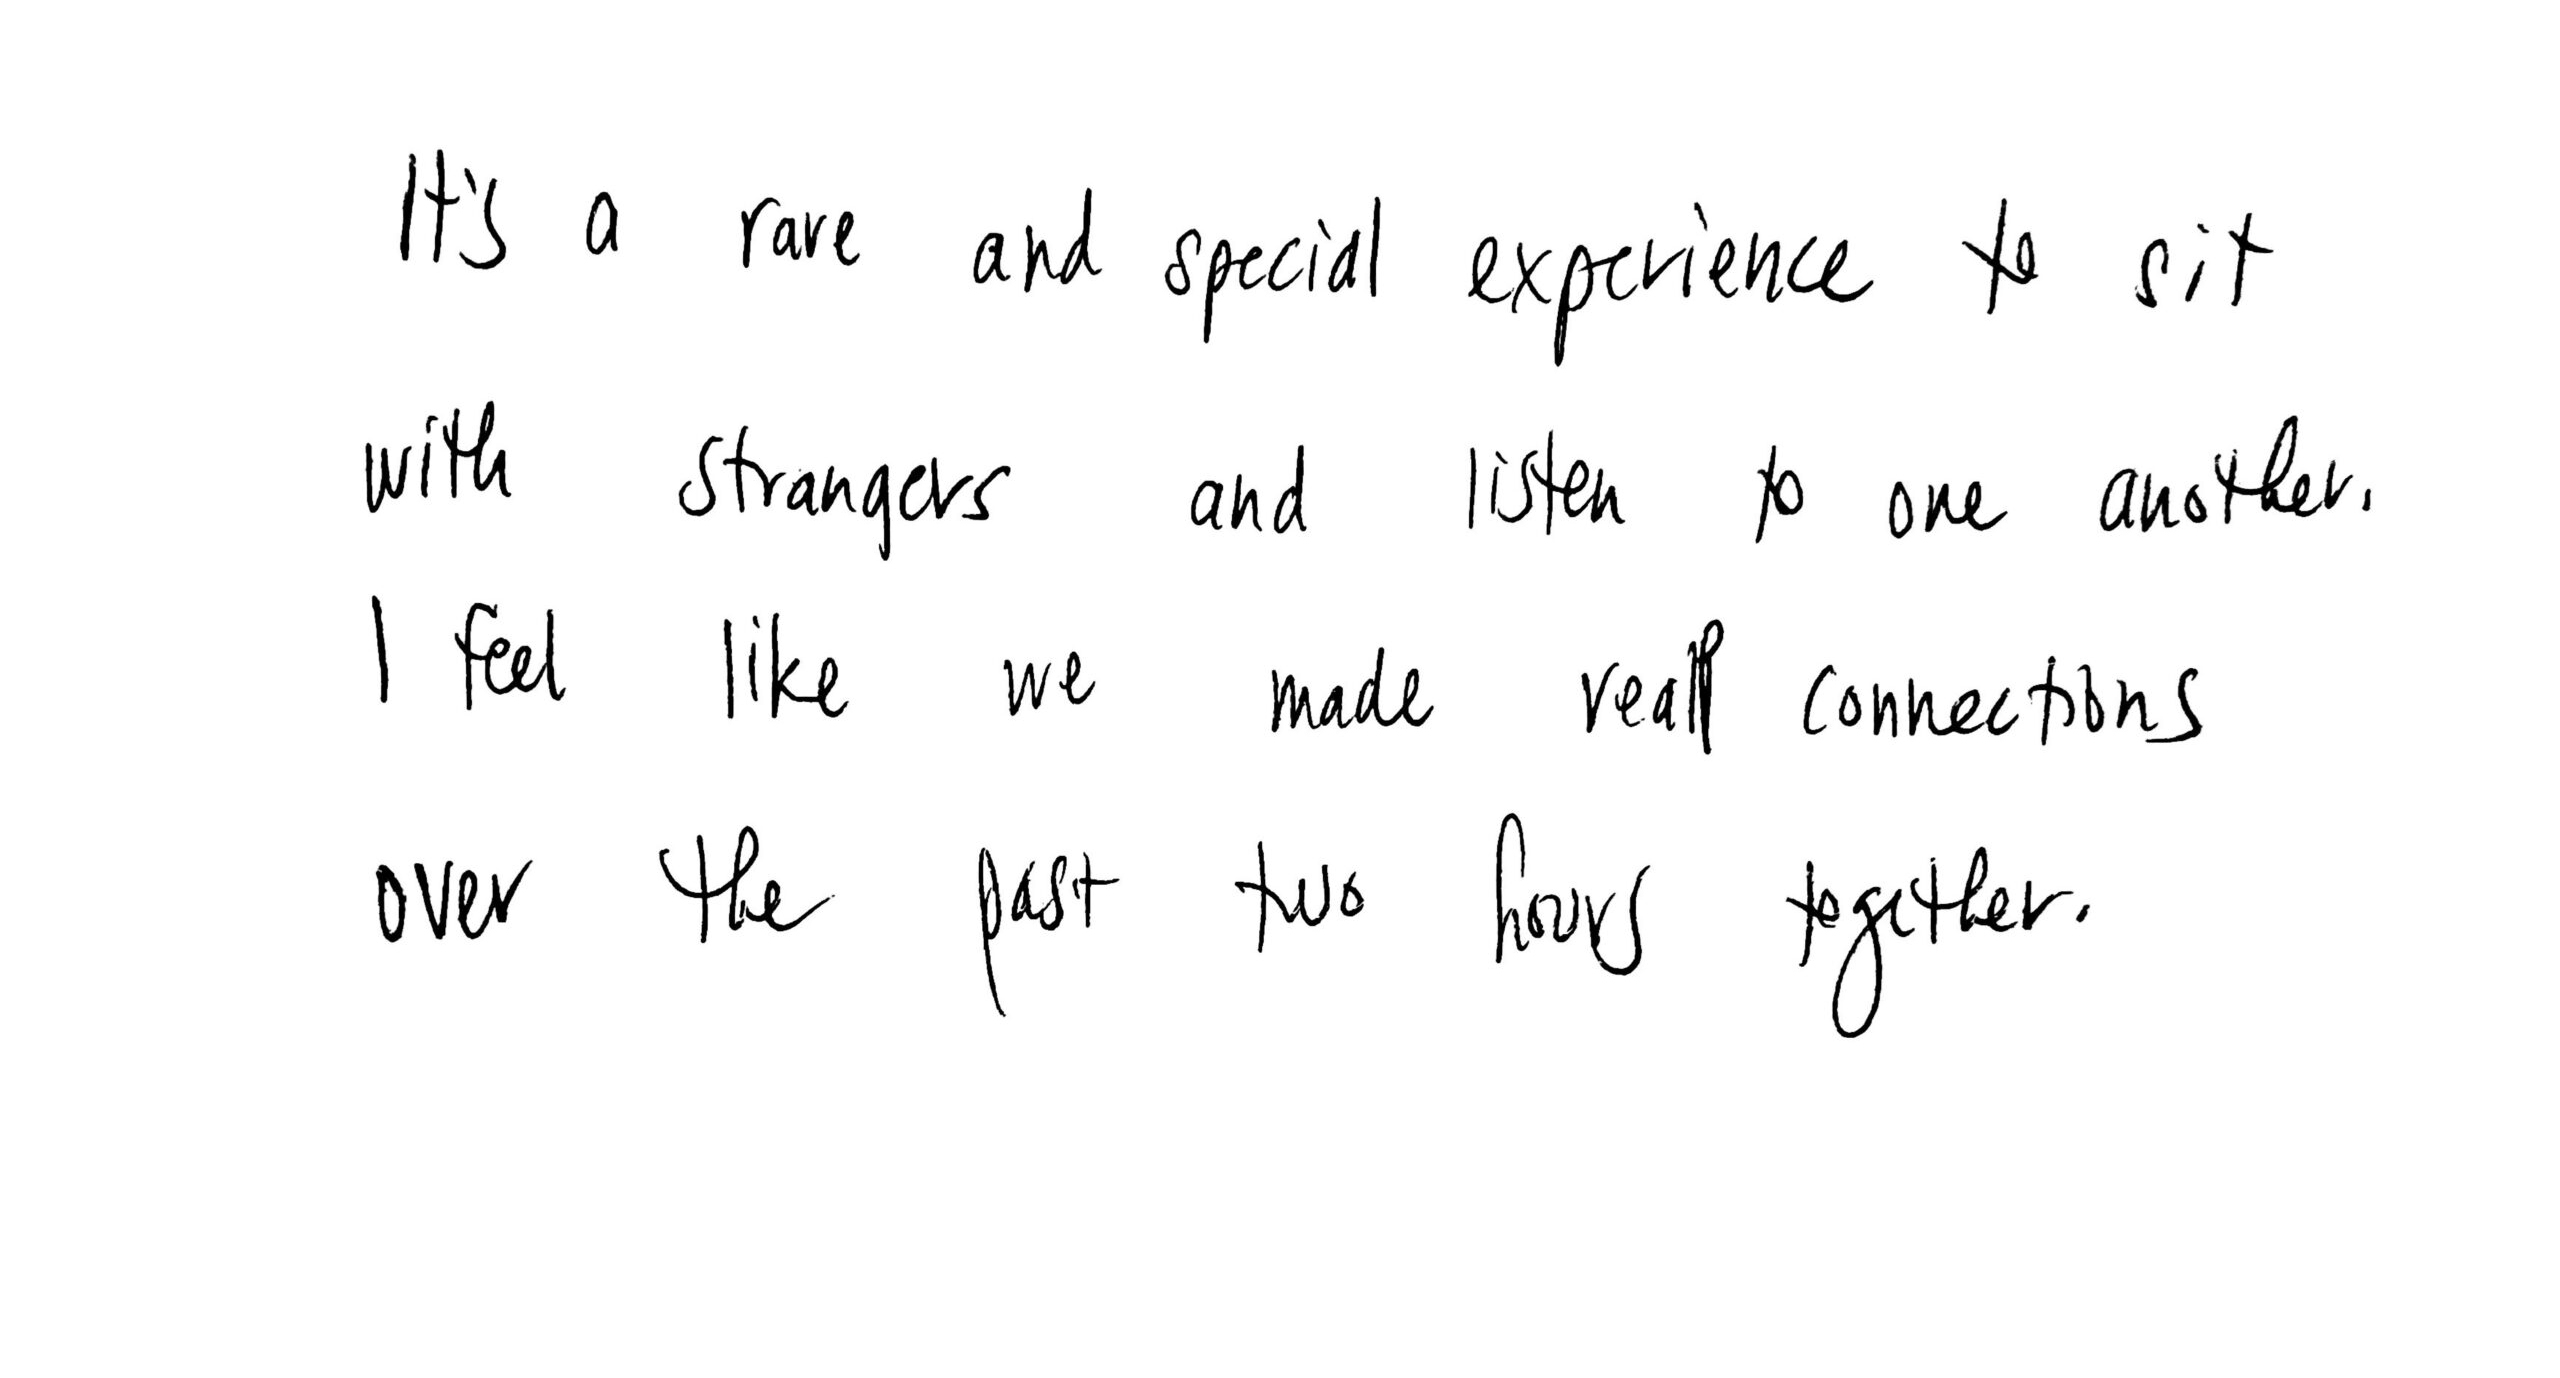 It's a rare and special experience to sit
with strangers and listen to one another.
I feel like we made real connections
over the past two hours together.